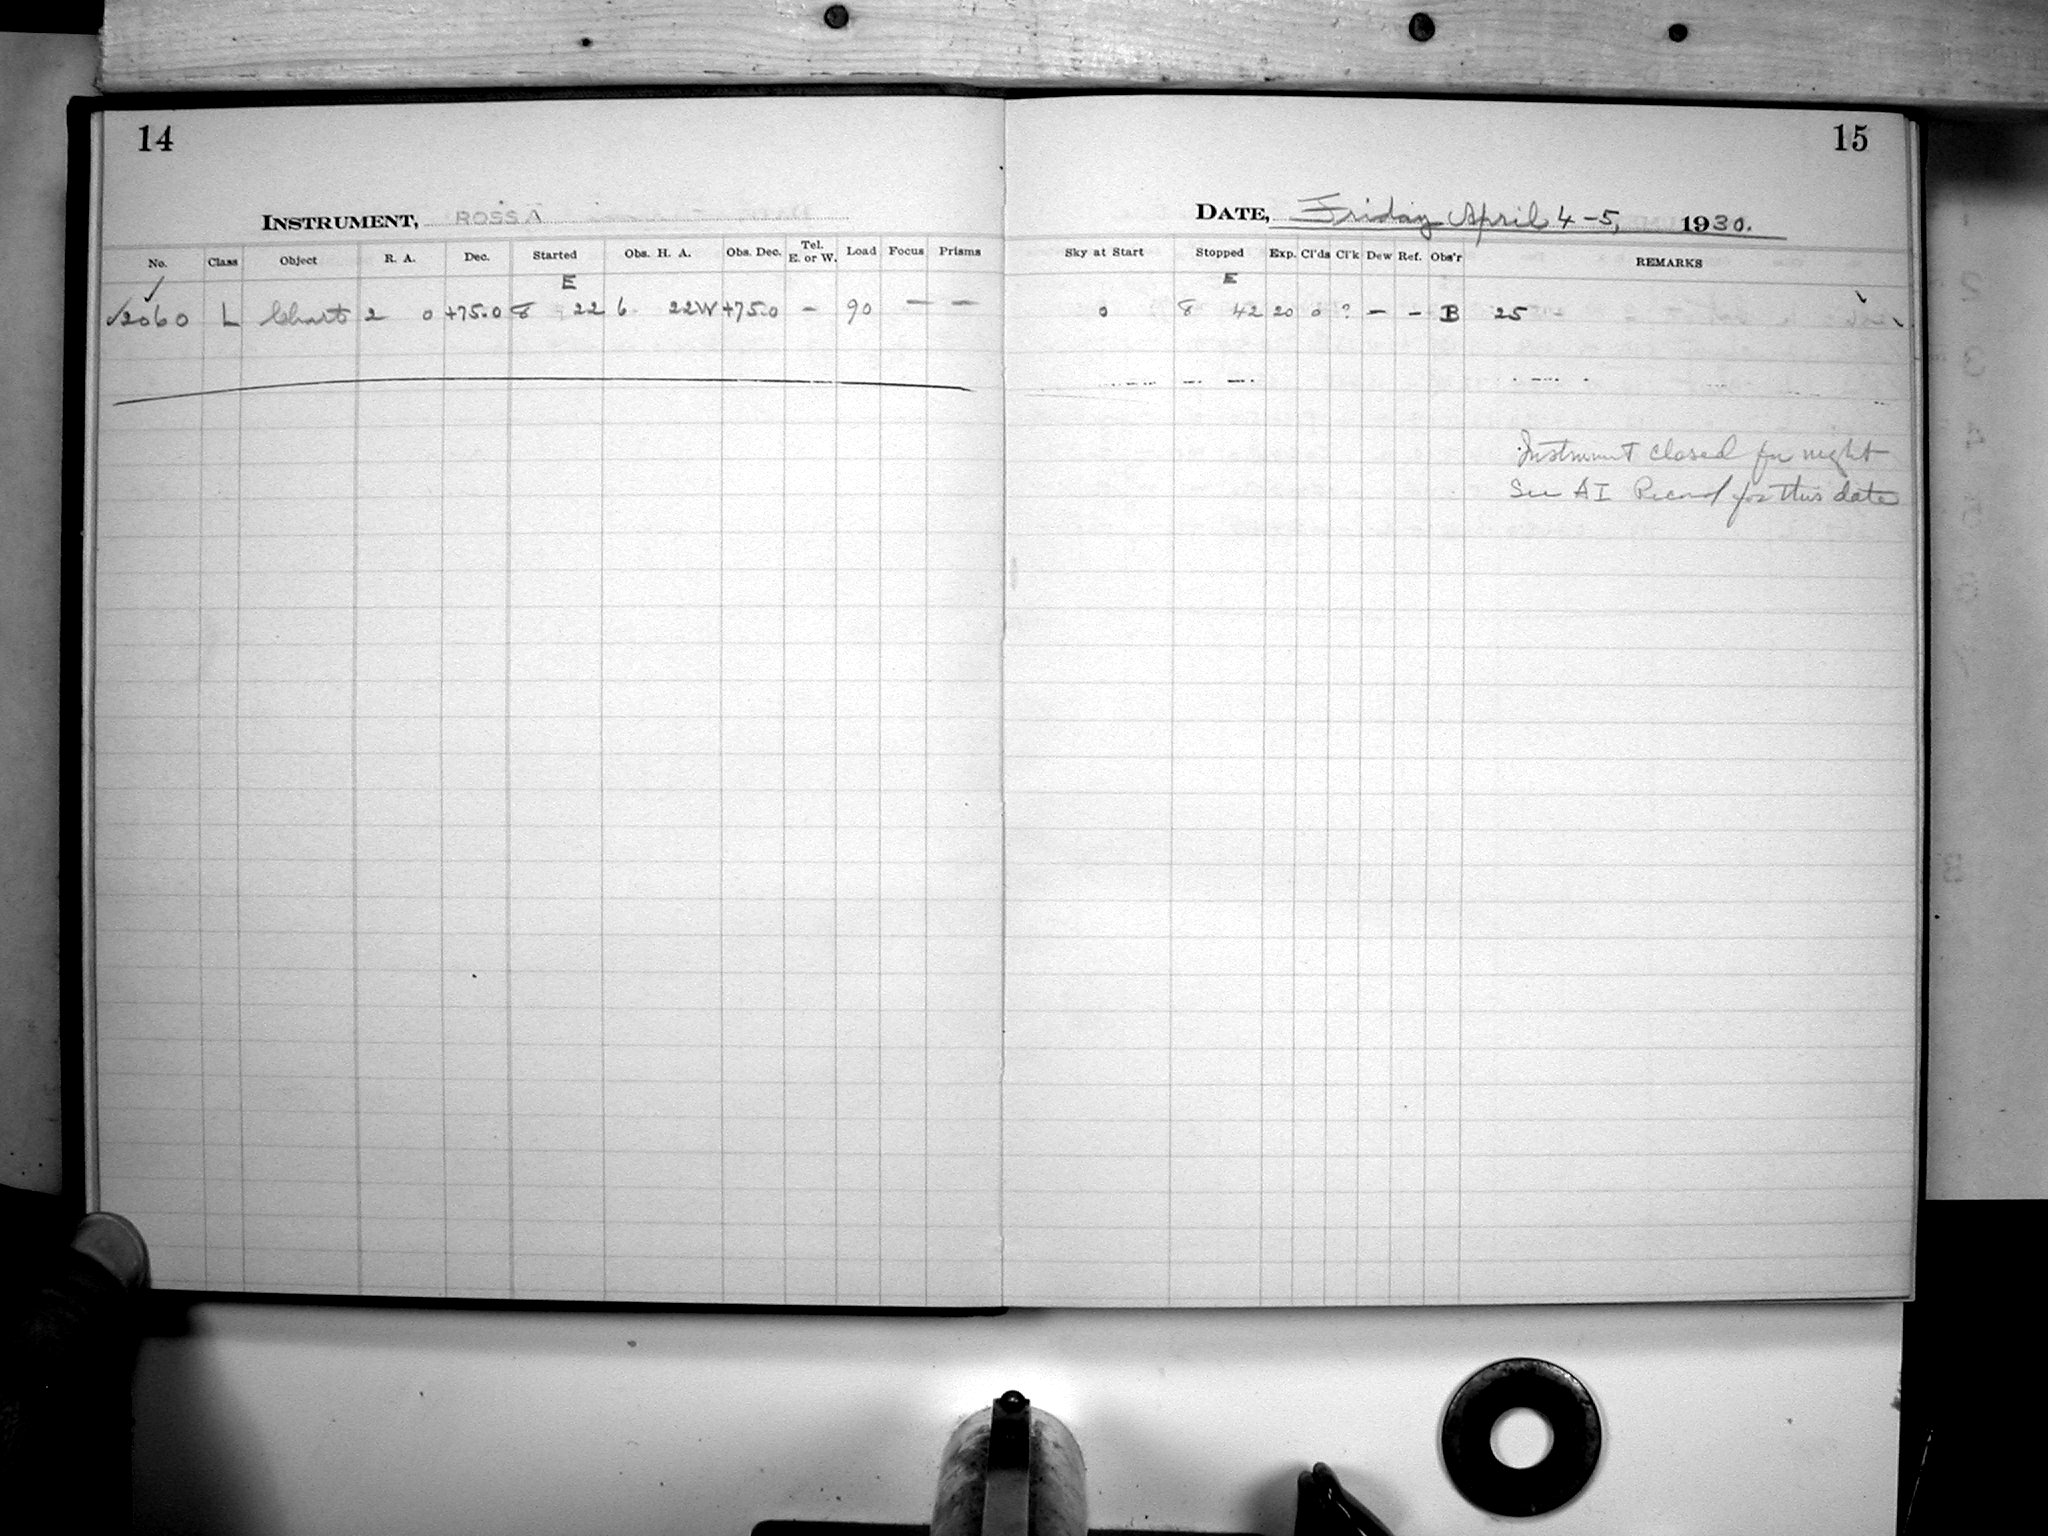 14
INSTRUMENT, ROSS A
No. Class Object R. A. Dec. Started Obs. H. A. Obs. Dec. Tel. E. or W. Load Focus Prisms
E
✓ ✓2060 L Chart 2 0 +75.0 8 22 6 22W +75.0 – 90 — —
15
DATE, Friday April 4-5, 1930.
Sky at Start Stopped Exp. Cl'ds Cl'k Dew Ref. Obs'r REMARKS
E
0 8 42 20 0 ? – – B 25
Instrument closed for night
See AI Record for this date